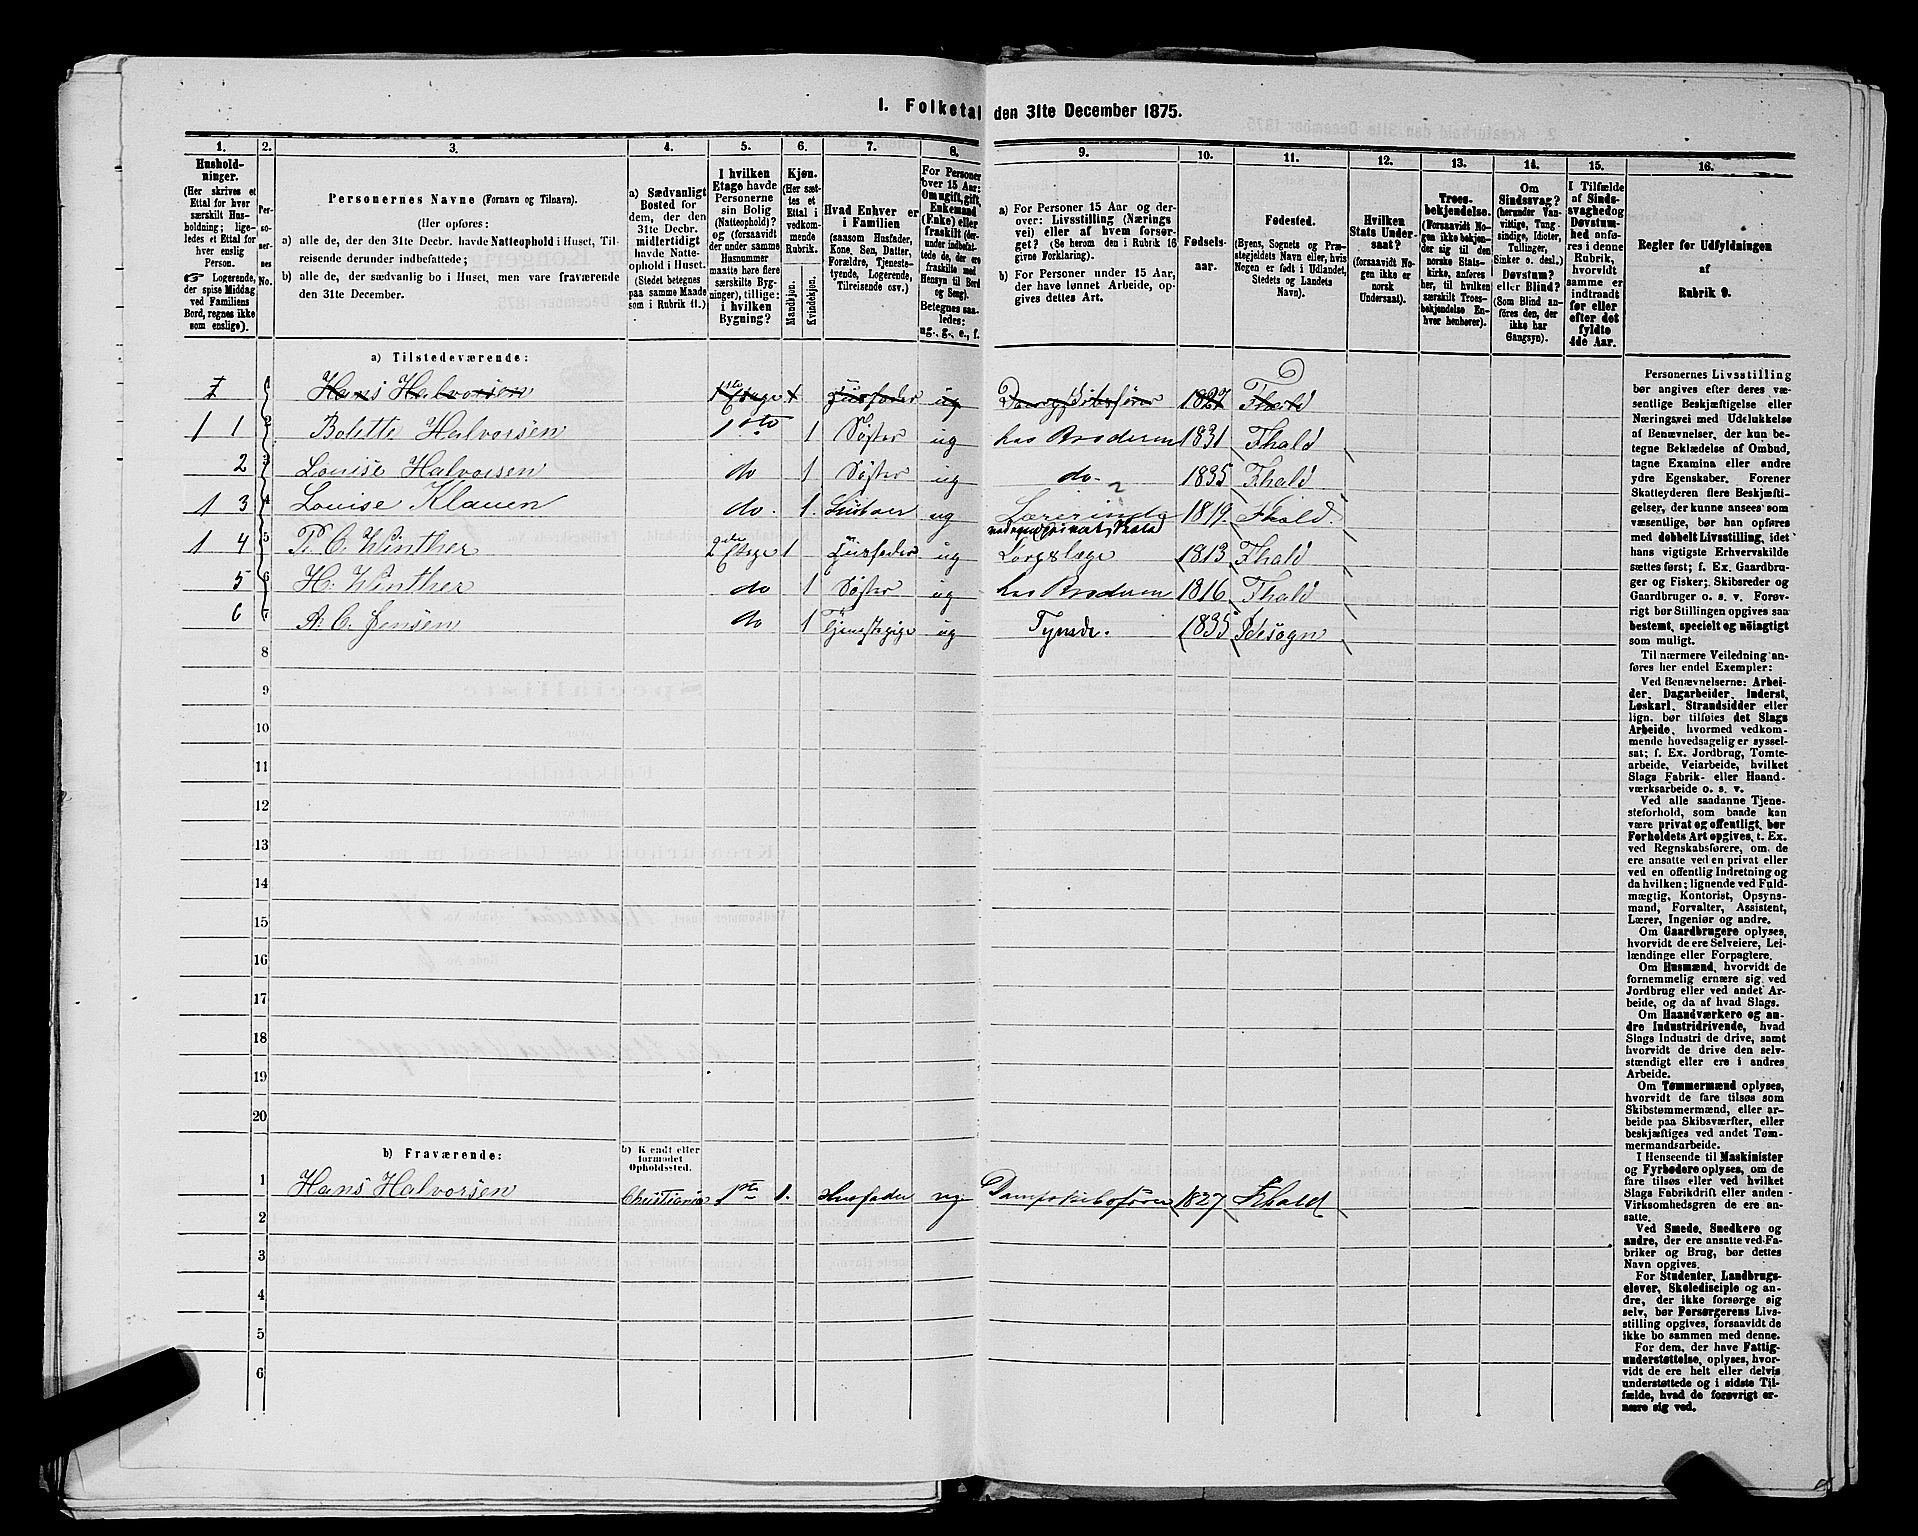 1. Folketal den 31te December 1875.
1. 2. 3. 4. 5. 6. 7. 8. 9. 10. 11. 12. 13. 14. 15. 16.
Husholdninger.
(Her skrives et
Ettal for hver
særskilt Husholdning; ligeledes
et Ettal for
hver enslig
Person.
☞ Logerende,
der spise Middag
ved Familiens
Bord, regnes ikke
som enslige).
Personernes No.
Personernes Navne (Fornavn og Tilnavn).
(Her opføres:
a) alle de, der den 31te Decbr. havde Natteophold i Huset, Tilreisende derunder indbefattede;
b) alle de, der sædvanlig bo i Huset, men vare fraværende
den 31te December.
a) Sædvanligt
Bosted for
dem, der den
31te Decbr.
midlertidigt
havde Natteophold
i Huset.
(Stedet betegnes
paa samme Maade
som i Rubrik 11.)
I hvilken
Etage havde
Personerne
sin Bolig
(Natteophold)?
og (forsaavidt
der under samme
Husnummer
maatte høre flere
særskilte Bygninger),
tillige:
i hvilken
Bygning?
Kjøn.
(Her sættes
et
Ettal i
vedkommende
Rubrik.
Mandkjøn.
Kvindekjøn.
Hvad Enhver er
i Familien
(saasom Husfader,
Kone, Søn, Datter,
Forældre, Tjenestetyende,
Logerende,
Tilreisende osv.)
For Personer
over 15 Aar:
Om ugift, gift,
Enkemand
(Enke) eller
fraskilt (derunder
indbefattede
de, der ere
fraskilte med
Hensyn til Bord
og Seng).
Betegnes saaledes:
ug., g., e., f.
a) For Personer 15 Aar og derover:
Livsstilling (Næringsvei)
eller af hvem forsørget?
(Se herom den i Rubrik 16
givne Forklaring).
b) For Personer under 15 Aar,
der have lønnet Arbeide, opgives
dettes Art.
Fødselsaar.
Fødested.
(Byens, Sognets og Præstegjeldets
Navn eller, hvis
Nogen er født i Udlandet,
Stedets og Landets
Navn).
Hvilken
Stats Undersaat?
(forsaavidt Nogen
ikke er
norsk
Undersaat).
Troesbekjendelse.
(Forsaavidt Nogen
ikke bekjender
sig til den
norske Statskirke,
anføres
her, til hvilken
særskilt Troesbekjendelse
Enhver
henhører).
Om
Sindssvag?
(herunder Vanvittige,
Tungsindige,
Idioter,
Tullinger,
Sinker o. desl.)
Døvstum?
eller Blind?
(Som Blind anføres
den, der
ikke har
Gangsyn).
I Tilfælde
af Sindssvaghed
og
Døvstumhed
anføres
i denne
Rubrik,
hvorvidt
samme er
indtraadt
før eller
efter det
fyldte
4de Aar.
Regler for Udfyldningen
af
Rubrik 9.
a) Tilstedeværende:
1 1 Hans Halvorsen 1ste Etage 1 Husfader ug 1827 Fhald
1 1 2 Bolette Halvorsen 1ste 1 Søster ug hos Broderen 1831 Fhald
2 3 Louise Halvorsen do 1 Søster ug do. 1835 Fhald
1 3 4 Louise Klauen do. 1. ug Lærerinde 1819. Fhald.
1 4 5 P. C. Winther 2den Etage 1 Husfader ug 1813 Fhald
5 6 H. Winther do 1 Søster ug hos Broderen 1816 Fhald
6 7 A. C. Jensen do 1 Tjenestepige ug Tyende. 1835 Idesogn
8
9
10
11
12
13
14
15
16
17
18
19
20
b) Fraværende:
b) Kjendt eller
formodet
Opholdssted.
1 Hans Halvorsen Christiania 1ste 1. Husfader ug Dampskibsfører 1827 Fhald
2
3
4
5
6
Personernes Livsstilling
bør angives efter deres væsentlige
Beskjæftigelse eller
Næringsvei med Udelukkelse
af Benævnelser, der kun betegne
Beklædelse af Ombud,
tagne Examina eller andre
ydre Egenskaber. Forener
Skatteyderen flere Beskjæftigelser,
der kunne ansees som
væsentlige, bør han opføres
med dobbelt Livsstilling, idet
hans vigtigste Erhvervskilde
sættes først; f. Ex. Gaardbruger
og Fisker; Skibsreder og
Gaardbruger o. s. v. Forøvrigt
bør Stillingen opgives saa
bestemt, specielt og nøiagtigt
som muligt.
Til nærmere Veiledning anføres
her endel Exempler:
Ved Benævnelserne: Arbeider,
Dagarbeider, Inderst,
Løskarl, Strandsidder eller
lign. bør tilføies det Slags
Arbeide, hvormed vedkommende
hovedsagelig er sysselsat;
f. Ex. Jordbrug, Tømtearbeide,
Veiarbeide, hvilket
Slags Fabrik- eller Haandværksarbeide
o. s. v.
Ved alle saadanne Tjenesteforhold,
som baade kan
være privat og offentligt, bør
Forholdets Art opgives, t. Ex.
ved Regnskabsførere, om de
ere ansatte ved en privat eller
ved en offentlig Indretning og
da hvilken; lignende ved Fuldmægtig,
Kontorist, Opsynsmand,
Forvalter, Assistent,
Lærer, Ingeniør og andre.
Om Gaardbrugere oplyses,
hvorvidt de ere Selveiere, Leilændinge
eller Forpagtere.
Om Husmænd, hvorvidt de
fornemmelig ernære sig ved
Jordbrug eller ved andet Arbeide,
og da af hvad Slags.
Om Haandværkere og andre
Industridrivende, hvad
Slags Industri de drive, samt
hvorvidt de drive den selvstændigt
eller ere i andres
Arbeide.
Om Tømmermænd oplyses,
hvorvidt de fare tilsøs som
Skibstømmermænd, eller arbeide
paa Skibsværfter, eller
beskjæftiges ved andet Tømmermandsarbeide.
I Henseende til Maskinister
og Fyrbødere oplyses, om de
fare tilsøs eller ved hvilket
Slags Fabrikdrift eller anden
Virksomhedsgren de ere ansatte.
Ved Smede, Snedkere og
andre, der ere ansatte ved Fabriker
og Brug, bør dettes
Navn opgives.
For Studenter, Landbrugselever,
Skoledisciple og andre,
der ikke forsørge sig
selv, bør Forsørgerens Livsstilling
opgives, forsaavidt de
ikke bo sammen med denne.
For dem, der have Fattigunderstøttelse,
oplyses, hvorvidt
de ere helt eller delvis
understøttede og i sidste Tilfælde,
hvad de forøvrigt ernære
sig ved.